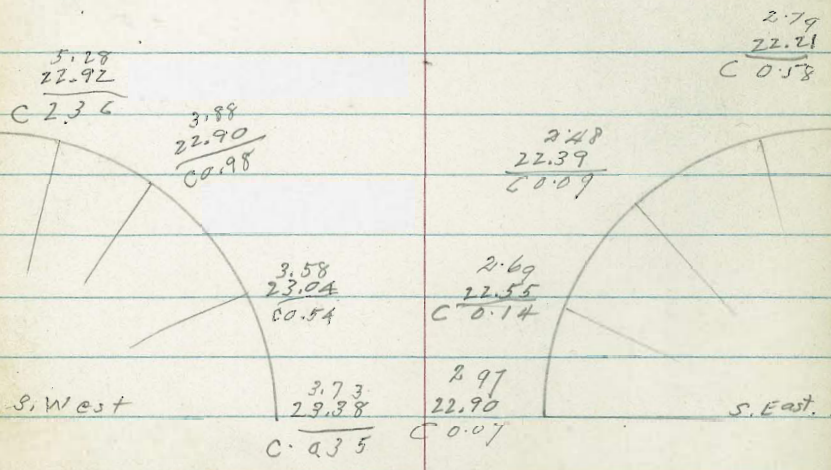 5.28
22.92
C 2.36
3.88
22.90
C0.98
3.58
23.04
C0.54
S. West
3.73
23.38
C. 0.35
2.79
22.21
C 0.58
2.48
22.39
C 0.09
2.69
22.55
C 0.14
2 97
22.90
C 0.07
S. East.